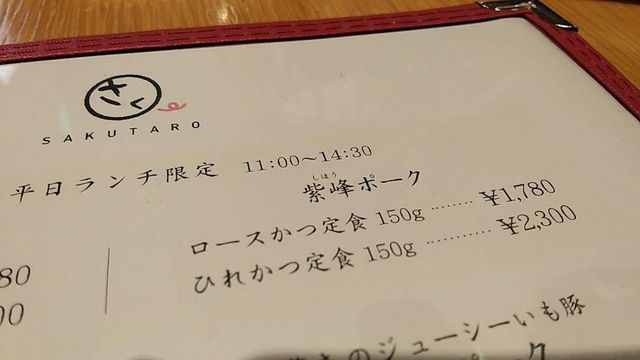 さく
SAKUTARO
平日ランチ限定 11:00〜14:30
しほう
紫峰ポーク
ロースかつ定食 150g ········ ¥1,780
ひれかつ定食 150g ············ ¥2,300
80
00
のジューシーいも豚